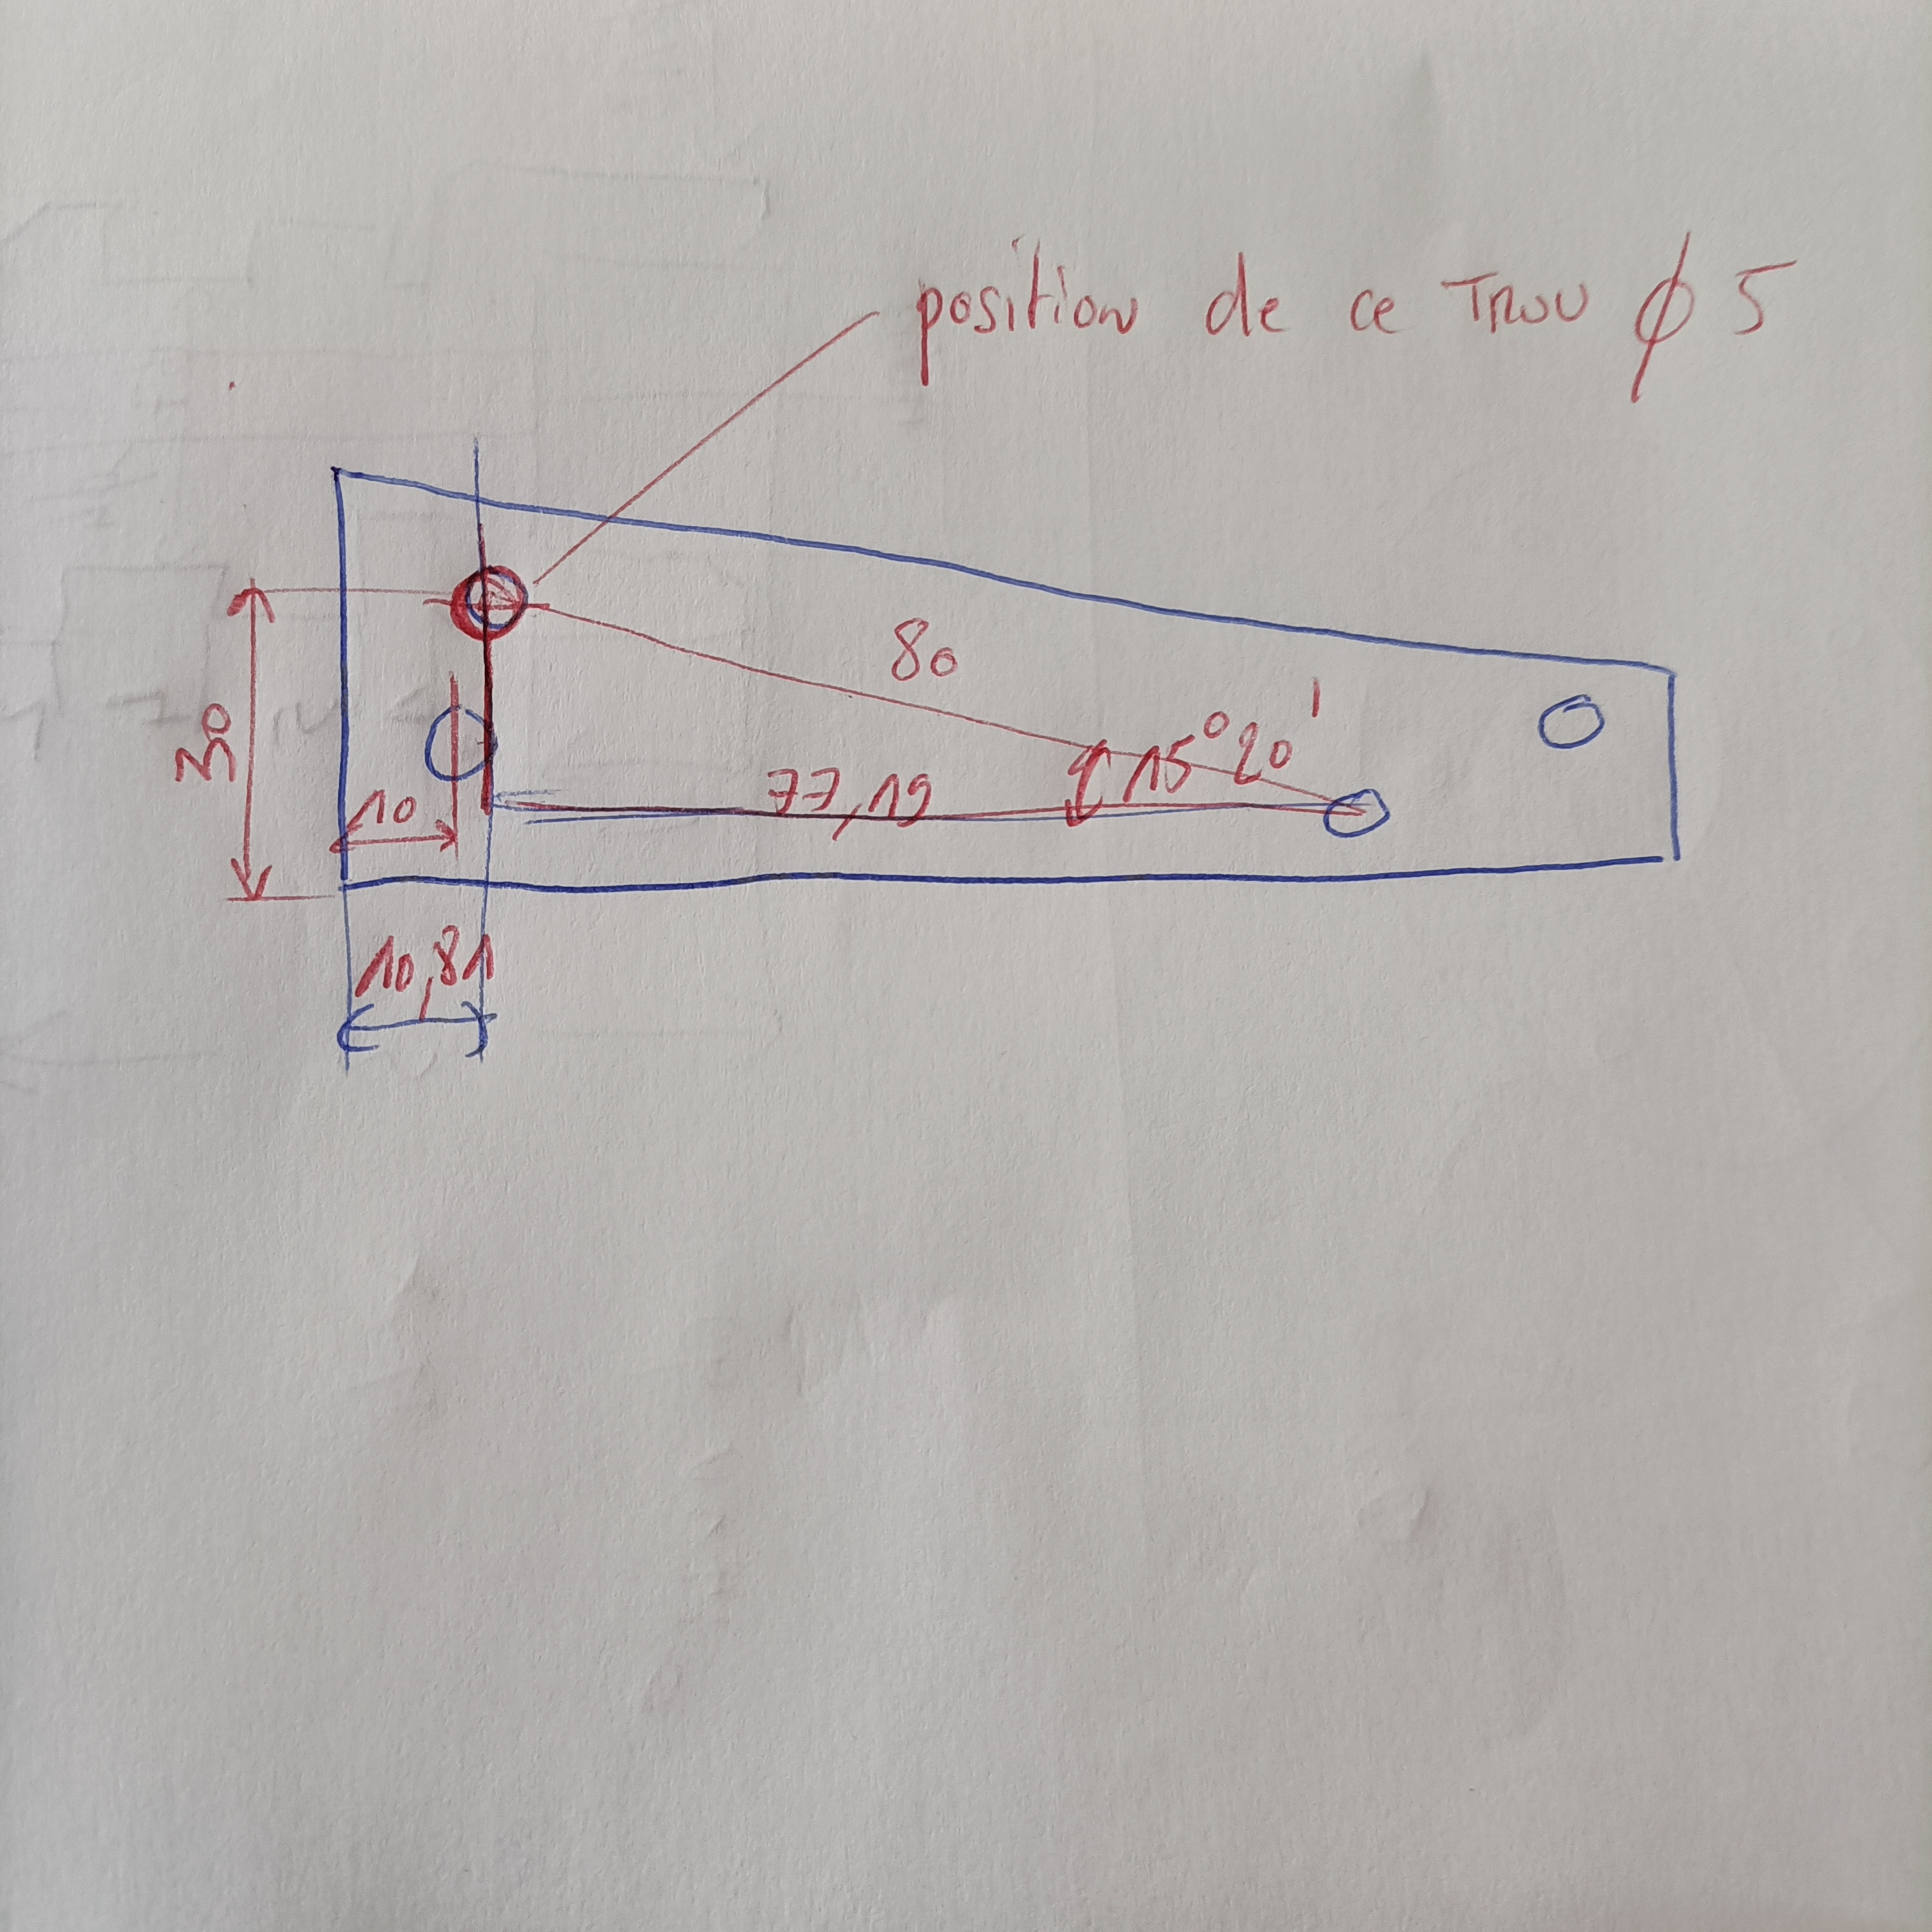 position de ce TROU ϕ 5
80
30
15°20'
77,19
10
10,81